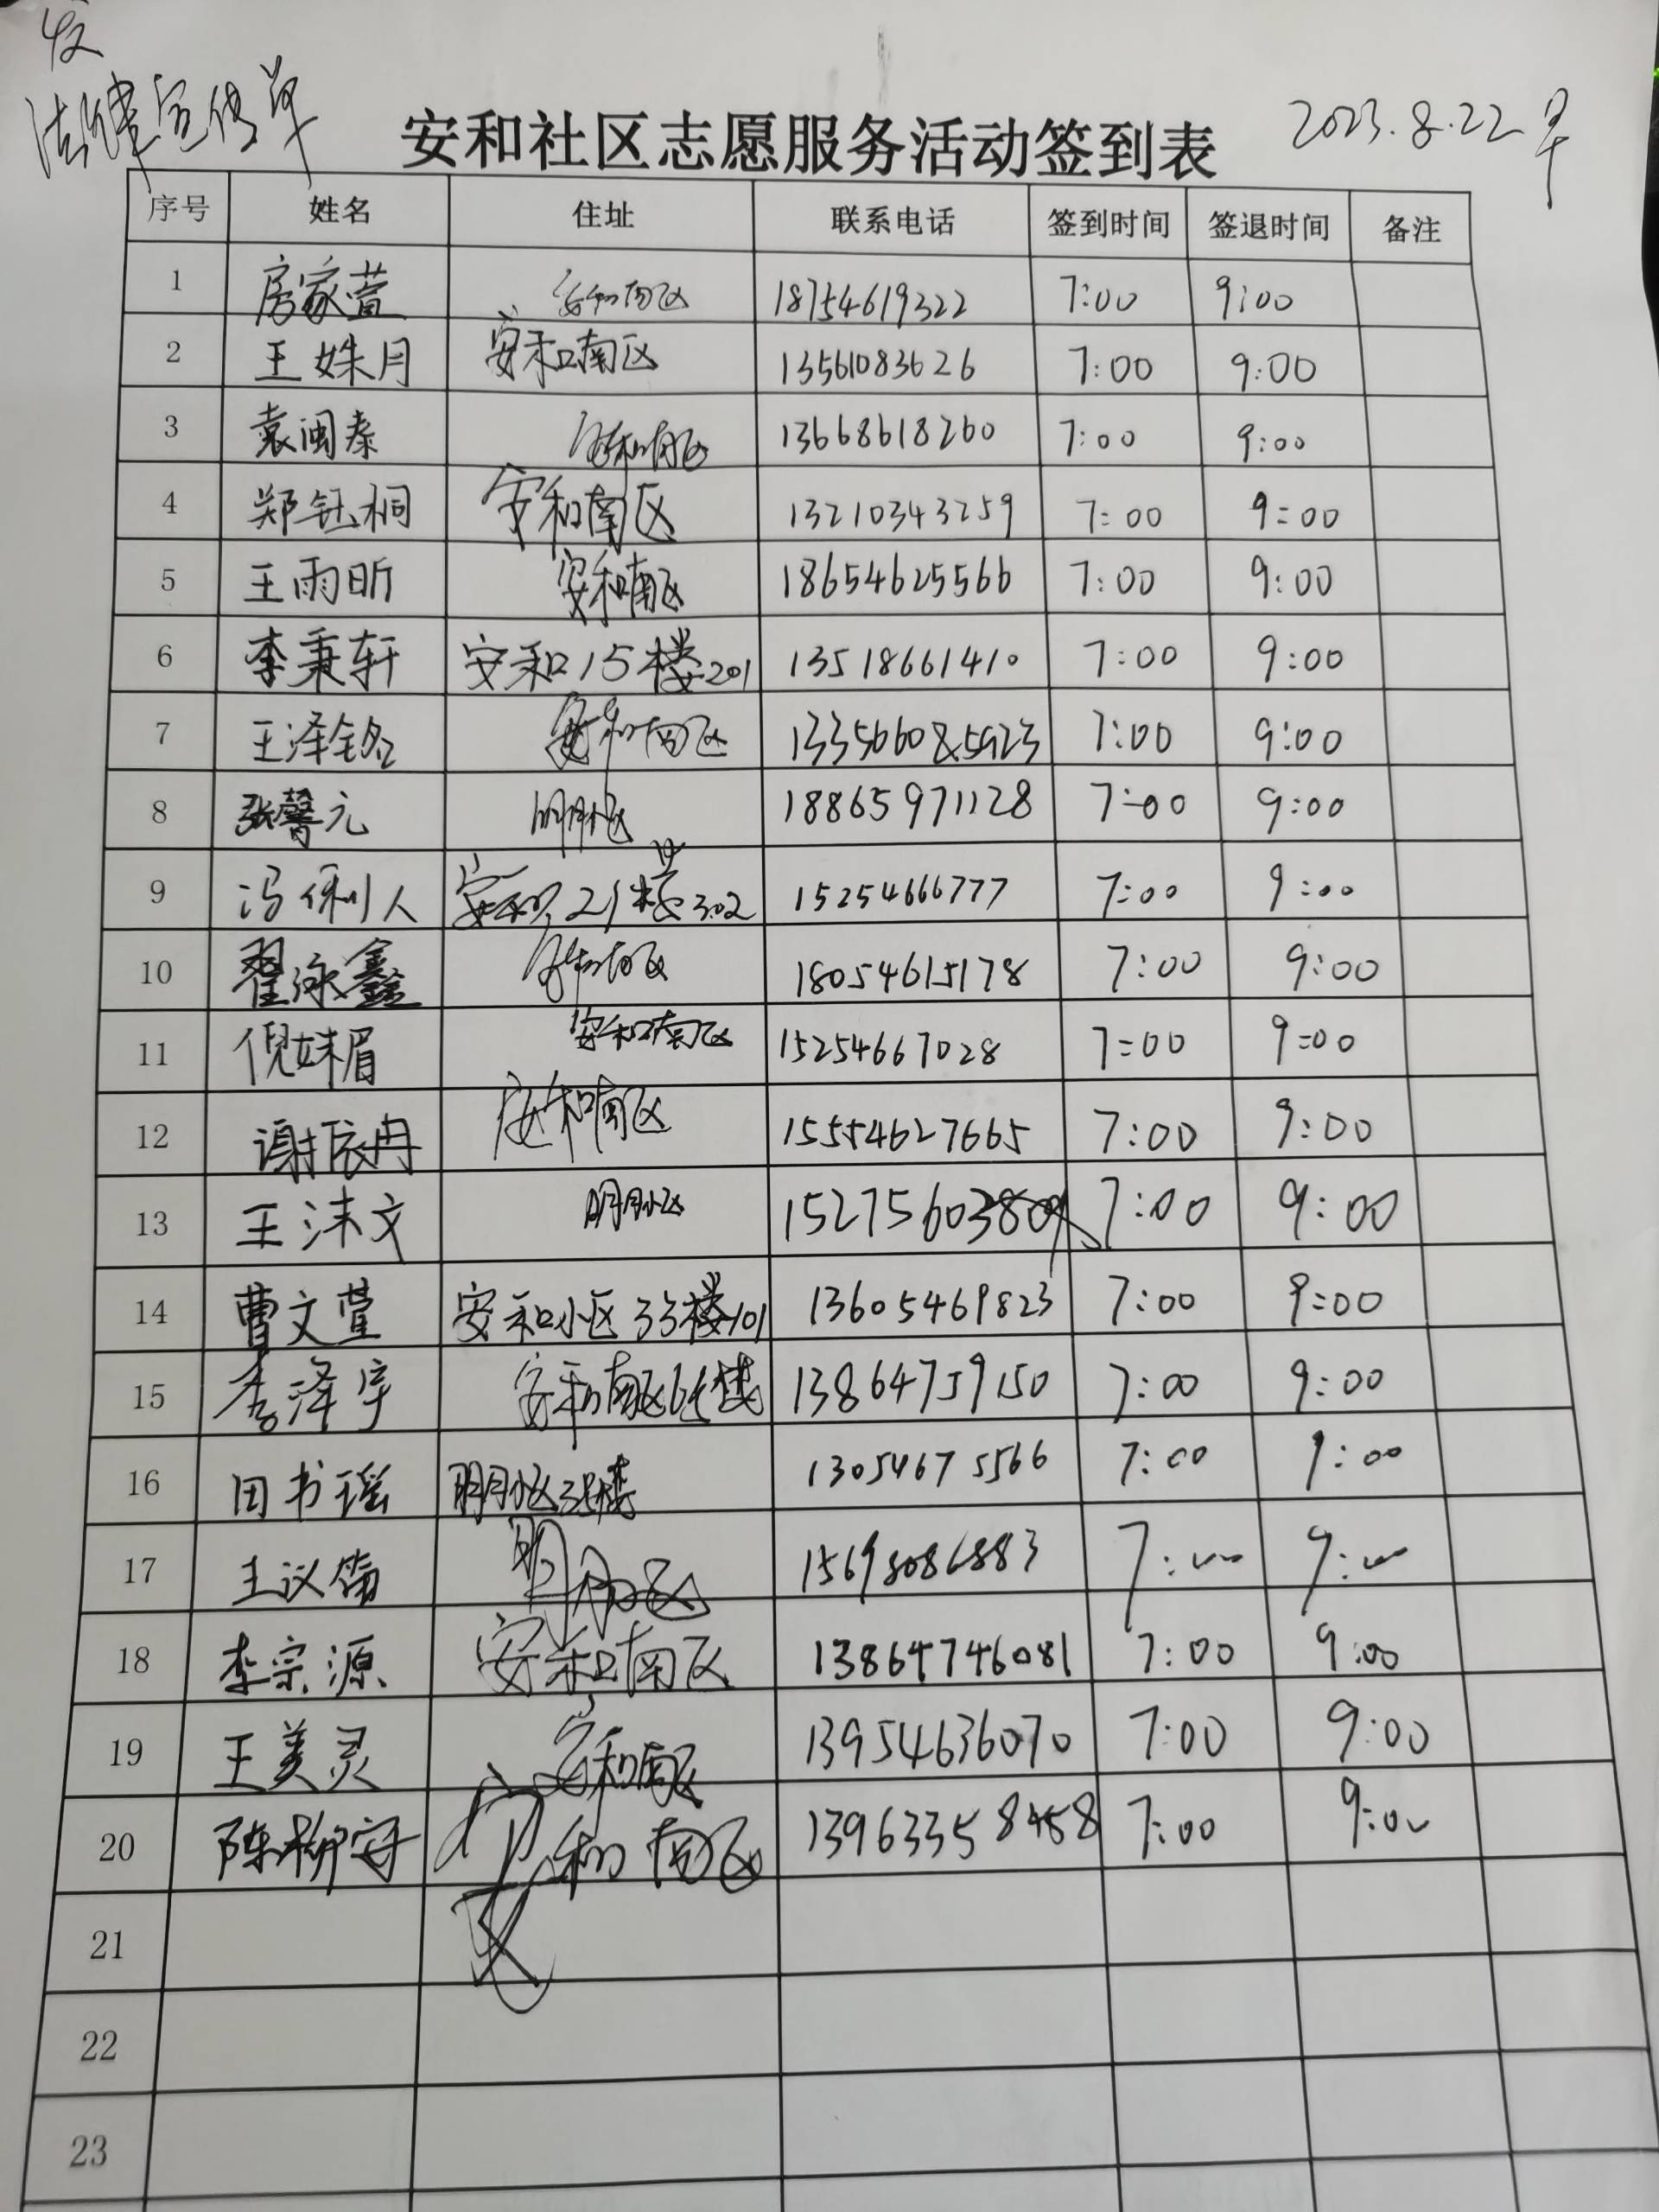 发
法律宣传单
安和社区志愿服务活动签到表 2023.8.22 早
序号 姓名 住址 联系电话 签到时间 签退时间 备注
1 房家萱 安和南区 18754619322 7:00 9:00
2 王姝月 安和南区 13561083626 7:00 9:00
3 袁闽秦 安和南区 13668618260 7:00 9:00
4 郑钰桐 安和南区 13210343259 7:00 9:00
5 王雨昕 安和南区 18654625566 7:00 9:00
6 李秉轩 安和15楼201 13518661410 7:00 9:00
7 王泽铭 安和南区 7:00 9:00
8 张馨元 明月小区 18865971128 7:00 9:00
9 冯俐人 安和21楼302 15254666777 7:00 9:00
10 翟泳鑫 安和南区 18054615178 7:00 9:00
11 倪妹眉 安和南区 15254667028 7:00 9:00
12 谢依冉 安和南区 15554627665 7:00 9:00
13 王沫文 明月小区 7:00 9:00
14 曹文萱 安和小区33楼101 13605469823 7:00 9:00
15 李泽宇 安和南区 13864759150 7:00 9:00
16 田书瑶 明月小区35楼 13054675566 7:00 9:00
17 王议 明月小区 15698086883 7:00 9:00
18 李宗源 安和南区 13864746081 7:00 9:00
19 王美灵 安和南区 13954636070 7:00 9:00
20 陈柳 安和南区 13963358458 7:00 9:00
21
22
23